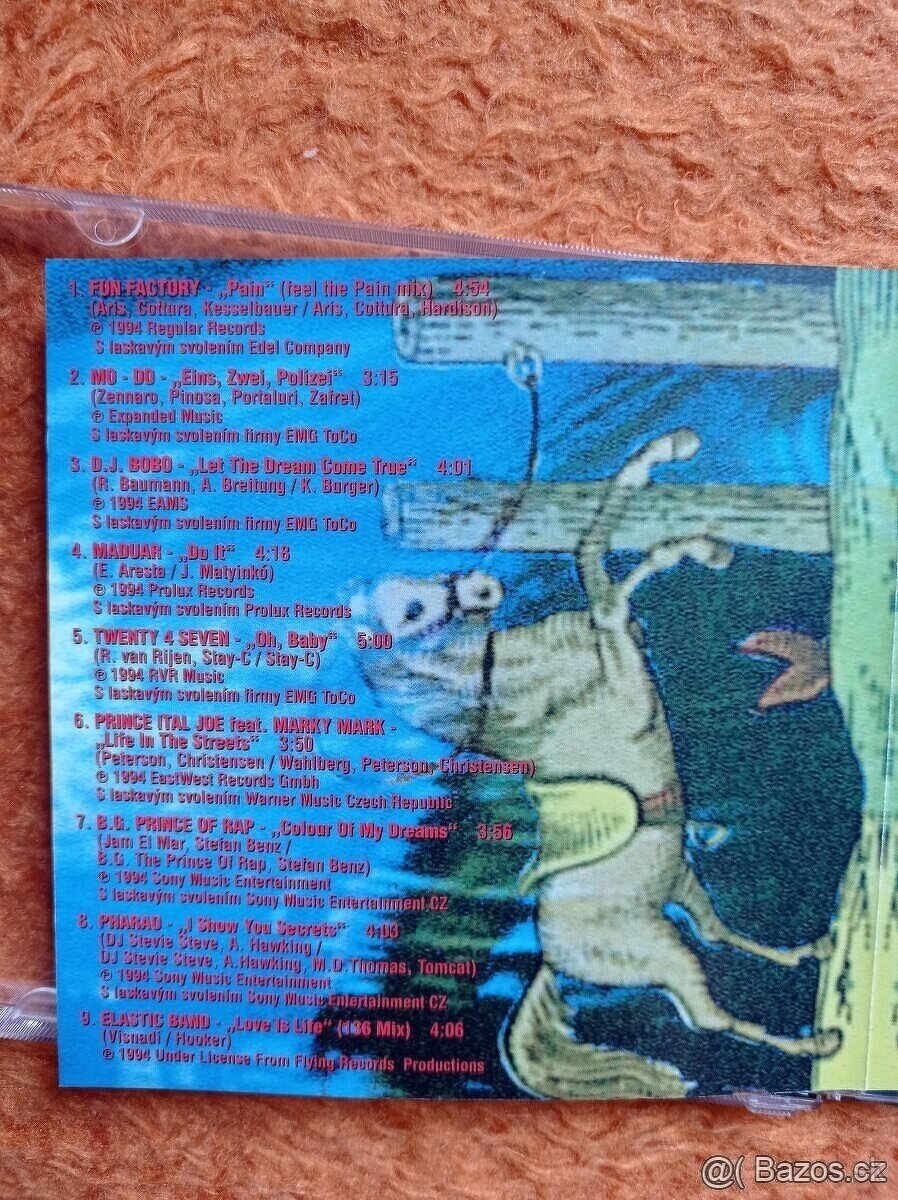 1. FUN FACTORY - „Pain“ (feel the Pain mix) 4:54
(Aris, Cottura, Kesselbauer / Aris, Cottura, Hardison)
℗ 1994 Regular Records
S laskavým svolením Edel Company
2. MO - DO - „Eins, Zwei, Polizei“ 3:15
(Zennaro, Pinosa, Portaluri, Zafret)
℗ Expanded Music
S laskavým svolením firmy EMG ToCo
3. D.J. BOBO - „Let The Dream Come True“ 4:01
(R. Baumann, A. Breitung / K. Burger)
℗ 1994 EAMS
S laskavým svolením firmy EMG ToCo
4. MADUAR - „Do It“ 4:18
(E. Aresta / J. Matyinkó)
℗ 1994 Prolux Records
S laskavým svolením Prolux Records
5. TWENTY 4 SEVEN - „Oh, Baby“ 5:00
(R. van Rijen, Stay-C / Stay-C)
℗ 1994 RVR Music
S laskavým svolením firmy EMG ToCo
6. PRINCE ITAL JOE feat. MARKY MARK -
„Life In The Streets“ 3:50
(Peterson, Christensen / Wahlberg, Peterson, Christensen)
℗ 1994 EastWest Records Gmbh
S laskavým svolením Warner Music Czech Republic
7. B.G. PRINCE OF RAP - „Colour Of My Dreams“ 3:56
(Jam El Mar, Stefan Benz /
B.G. The Prince Of Rap, Stefan Benz)
℗ 1994 Sony Music Entertainment
S laskavým svolením Sony Music Entertainment CZ
8. PHARAO - „I Show You Secrets“ 4:03
(DJ Stevie Steve, A. Hawking /
DJ Stevie Steve, A.Hawking, M.D.Thomas, Tomcat)
℗ 1994 Sony Music Entertainment
S laskavým svolením Sony Music Entertainment CZ
9. ELASTIC BAND - „Love Is Life“ (136 Mix) 4:06
(Visnadi / Hooker)
℗ 1994 Under License From Flying Records Productions
@( Bazos.cz